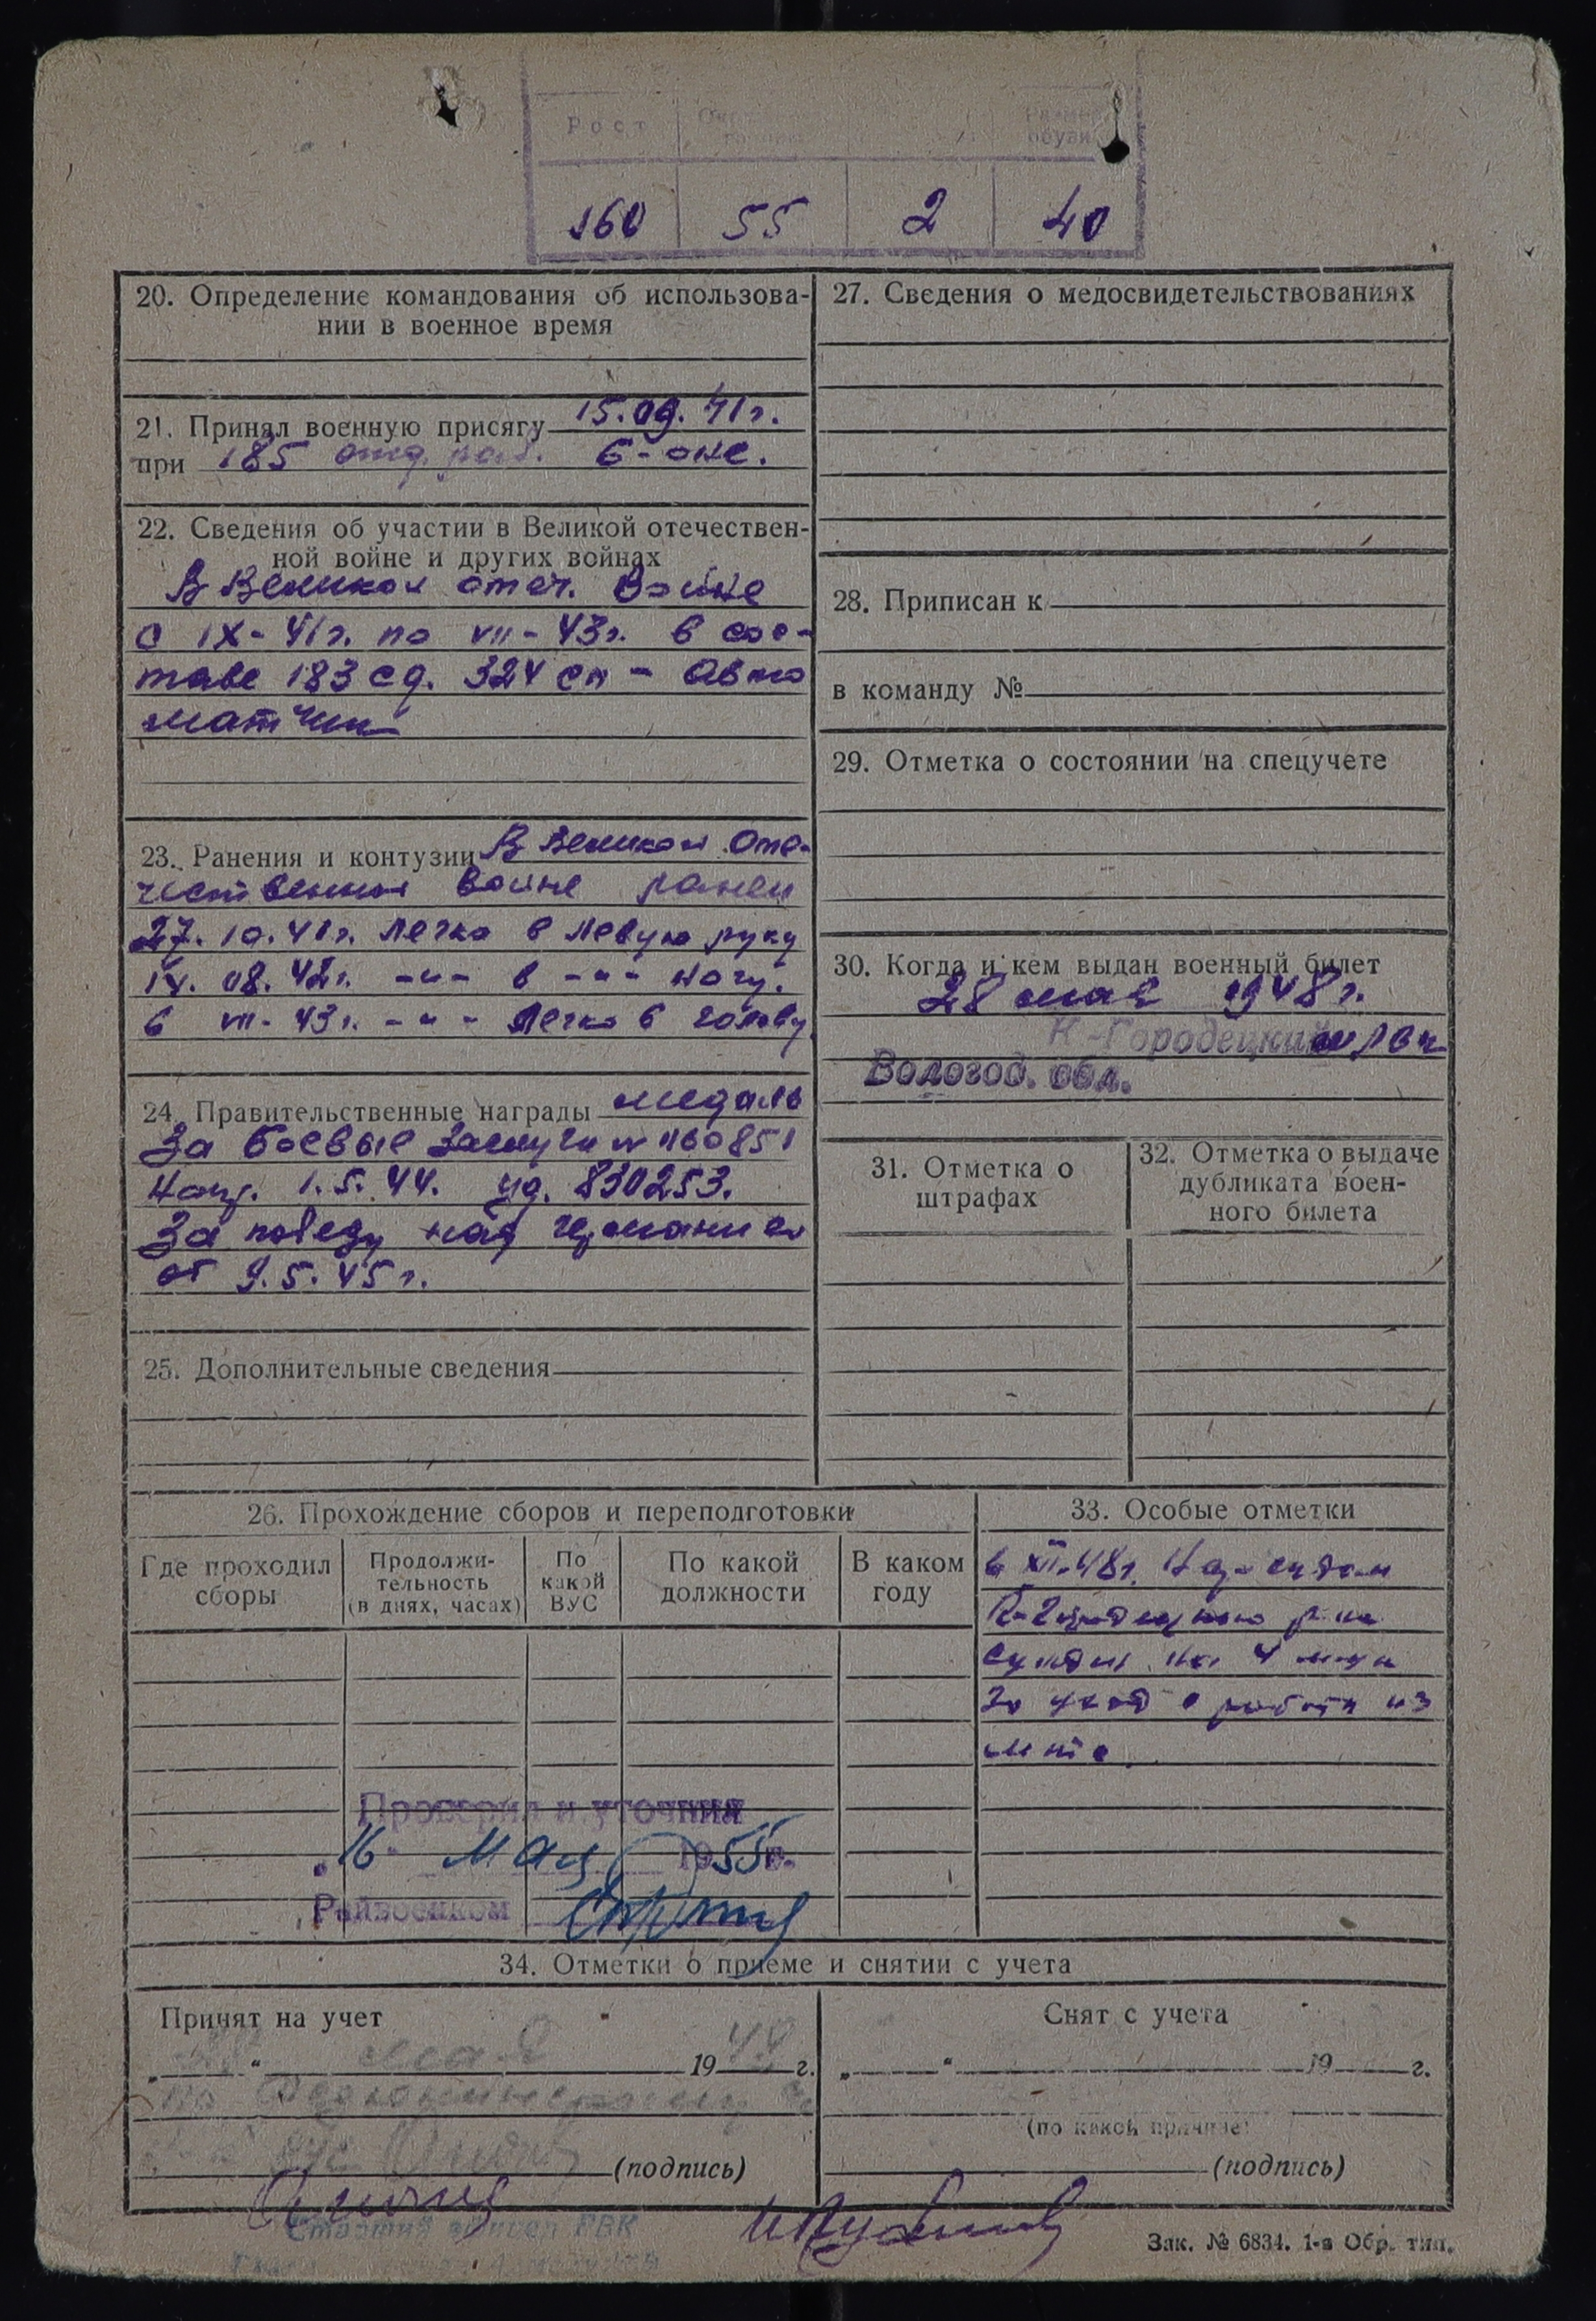 Рост
Размер
обуви
160 55 2 40
20. Определение командования об использова-
нии в военное время
21. Принял военную присягу 15.09.41г.
при 185 отд. раб. б-оне.
22. Сведения об участии в Великой отечествен-
ной войне и других войнах
В Великой отеч. войне
с IX-41г. по VII-43г. в сос-
таве 183 сд. 324 сп - авто
матчик
23. Ранения и контузии В Великой Оте-
чественной войне ранен
27.10.41г. легко в левую руку
08.42г. -"- в -"- ногу.
в VII-43г. -"- легко в голову
24. Правительственные награды медаль
За боевые заслуги № 1160851
1.5.44. уд. 830253.
За победу над германией
от 9.5.45г.
25. Дополнительные сведения
27. Сведения о медосвидетельствованиях
28. Приписан к
в команду №
29. Отметка о состоянии на спецучете
30. Когда и кем выдан военный билет
28 мая 1948г.
К-Городецким РВК
Вологод. обл.
31. Отметка о
штрафах
32. Отметка о выдаче
дубликата воен-
ного билета
26. Прохождение сборов и переподготовки
Где проходил
сборы
Продолжи-
тельность
(в днях, часах)
По
какой
ВУС
По какой
должности
В каком
году
33. Особые отметки
в XII.48г. Нар-судом
К-Городецкого р-на
на 4
за уход с работы из
Проверил и уточнил
„16" мая 1955г.
Райвоенком
34. Отметки о приеме и снятии с учета
Принят на учет
„ " мая 1948 г.
(подпись)
Снят с учета
„ " 19 г.
(по какой причине)
(подпись)
Старший РВК
Зак. № 6834. 1-я Обр. тип.